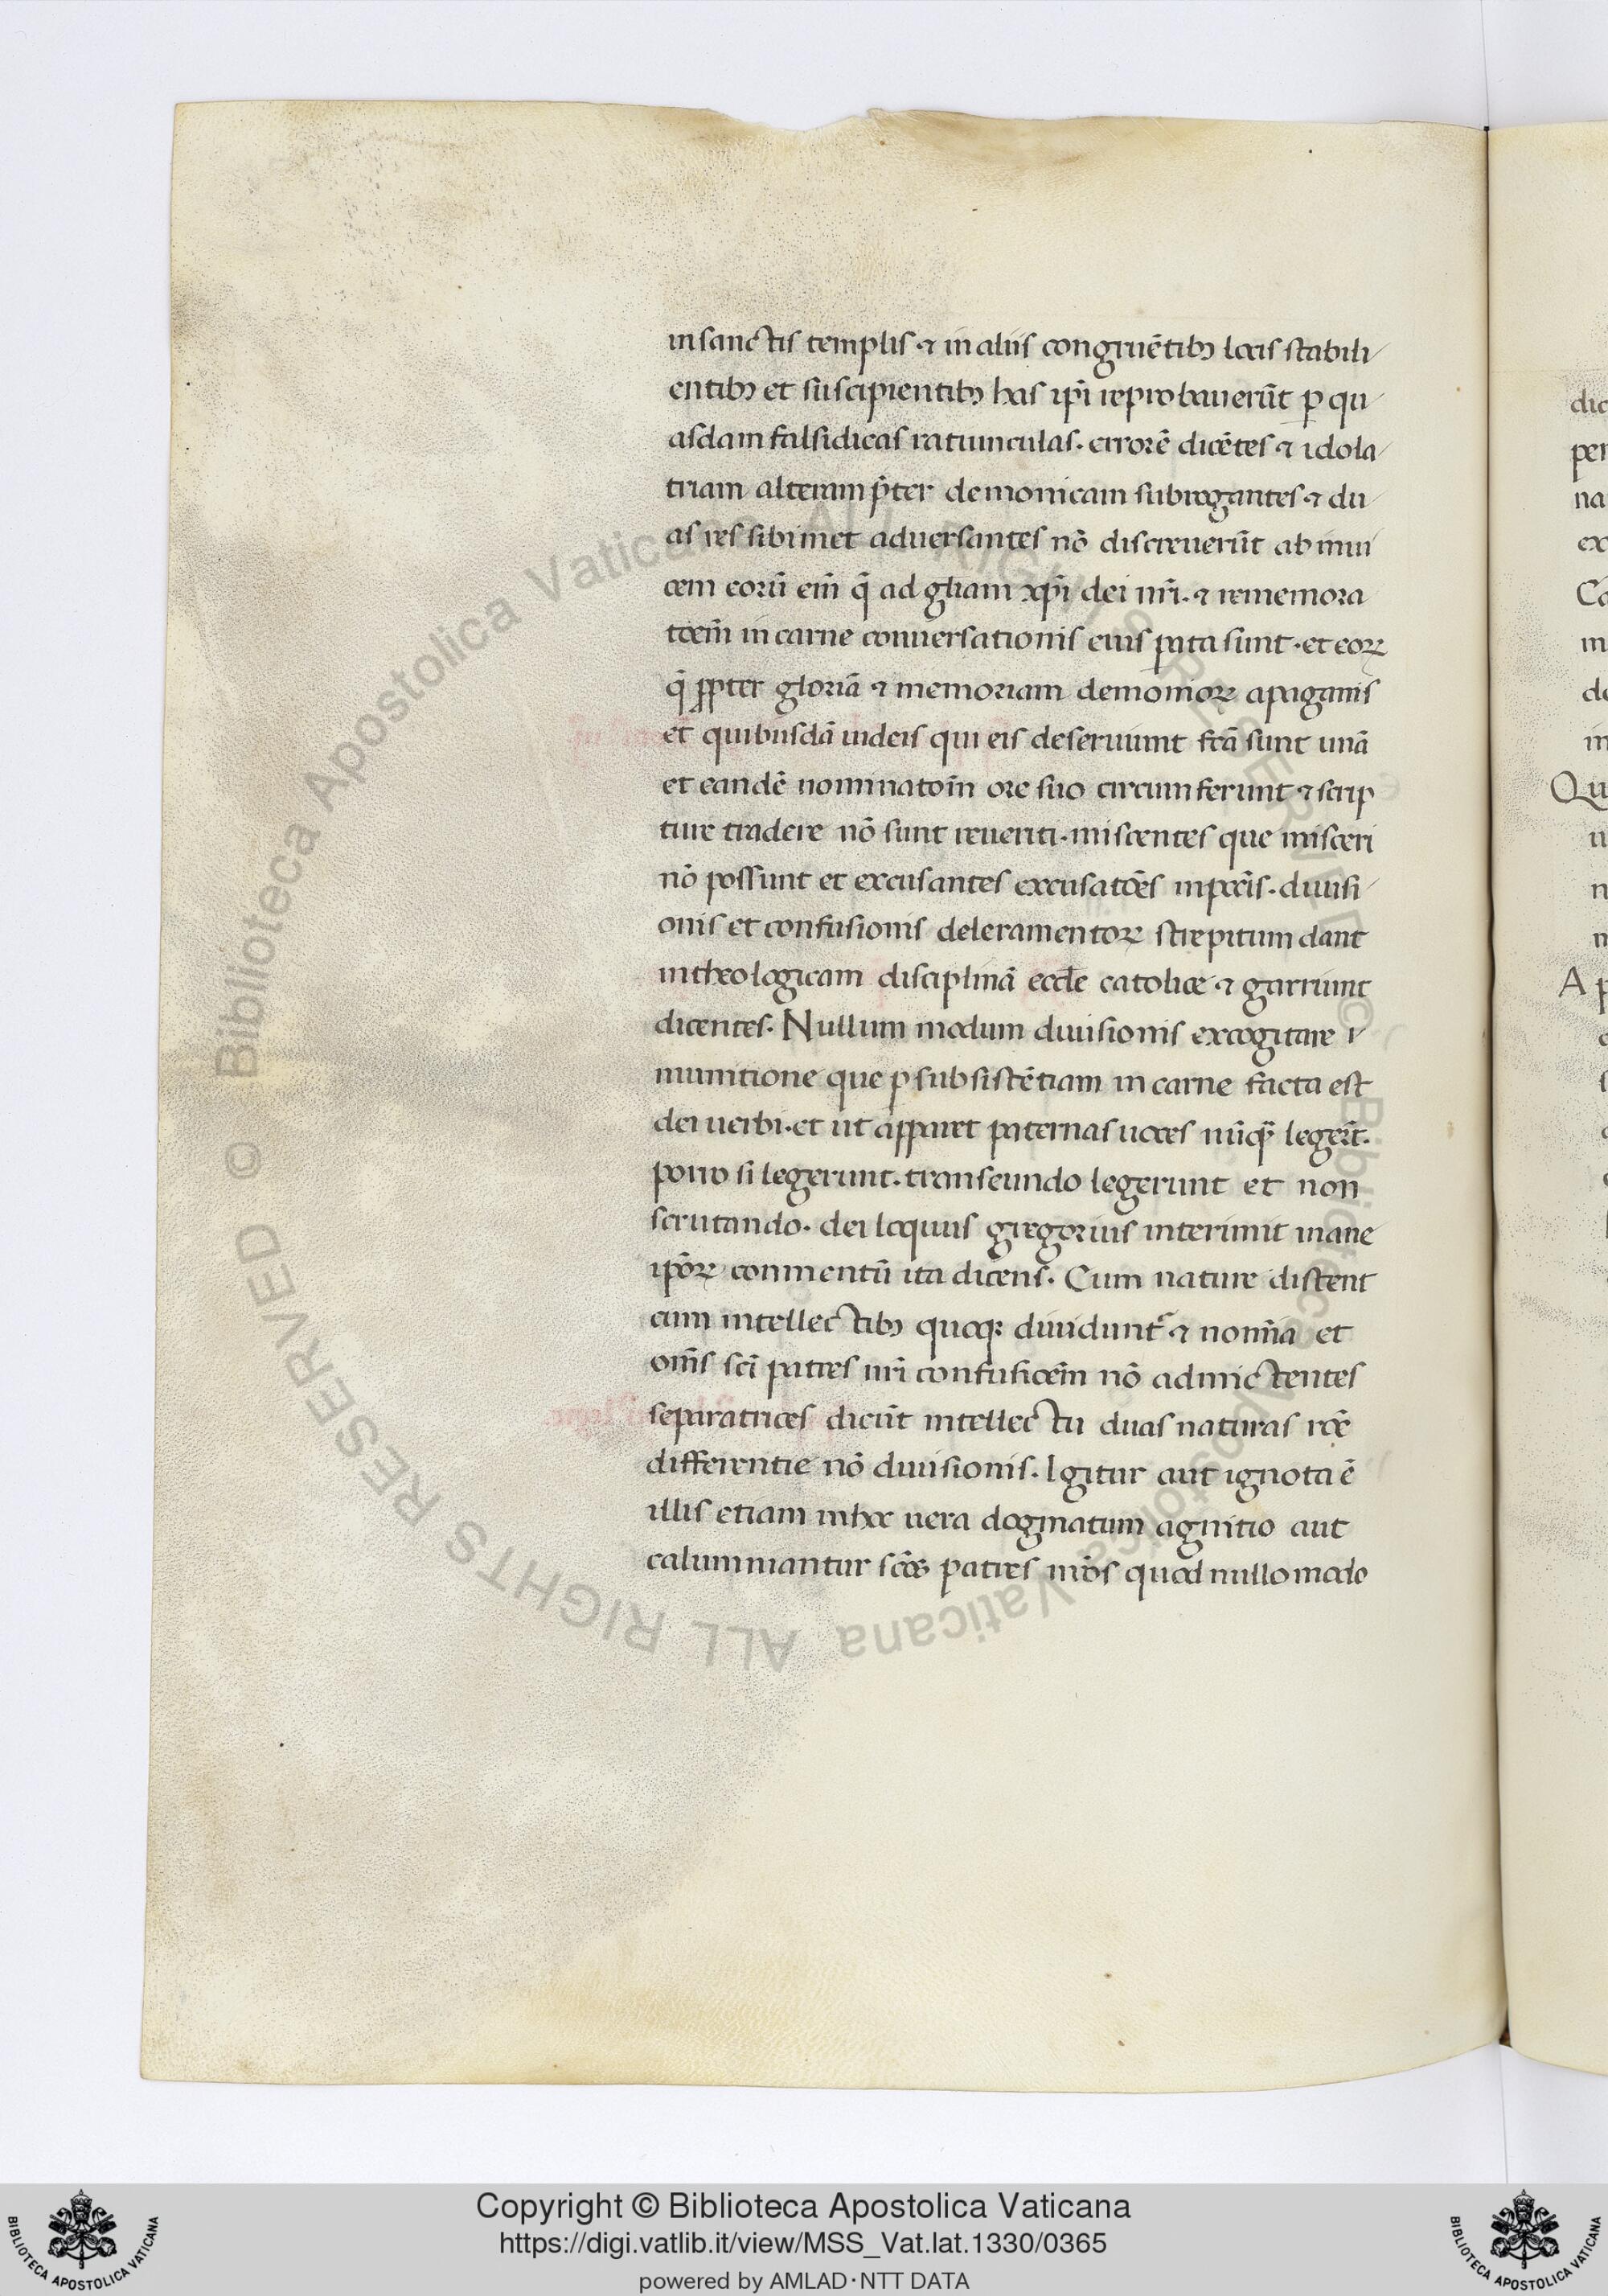 in sanctis templis ⁊ in aliis congruētibꝫ locis stabili
entibꝫ et suscipientibꝫ has ip̄i reprobauerūt ꝑ qu
asdam falsidicas ratiunculas. errorē dicētes ⁊ idola
triam alteram p̄ter demonicam subrogantes ⁊ du
as res sibimet aduersantes nō discreuerūt ab inui
cem eorū em̄ q̄ ad gl̄iam xp̄i dei nr̄i. ⁊ rememora
tōem̄ in carne conuersationis eius ꝑata sunt. et eoꝝ
q̄ ꝓpter gloriā ⁊ memoriam demonioꝝ a paganis
et quibusdā iudeis qui eis deseruiunt fc̄a sunt unā
et eandē nominatoīn ore suo circumferunt ⁊ scrip
ture tradere nō sunt reueriti. miscentes que misceri
nō possunt et excusantes excusatōes in pcc̄is. diuisi
onis et confusionis deleramentoꝝ strepitum dant
in theologicam disciplinā eccl̄e catolice ⁊ garriunt
dicentes. Nullum modum diuisionis excogitare i
munitione que ꝑ subsistētiam in carne facta est
dei uerbi. et ut apparet paternas uoces nūqꝫ leger̄t.
porro si legerunt. transeundo legerunt et non
scrutando. deiloquus gregorius interimit inane
ip̄oꝝ conmentū ita dicens. Cum nature distent
cum intellectibꝫ quoqꝫ diuidunt᷑ ⁊ nom̄ia et
om̄s sc̄i patres nr̄i confusioēm nō admictentes
separatrices dicūt intellectu duas naturas rōe
differentie nō diuisionis. Igitur aut ignota ē
illis etiam in hoc uera dogmatum agnitio aut
calumniantur sc̄os patres nr̄os quod nullo modo
Copyright © Biblioteca Apostolica Vaticana
https://digi.vatlib.it/view/MSS_Vat.lat.1330/0365
powered by AMLAD·NTT DATA